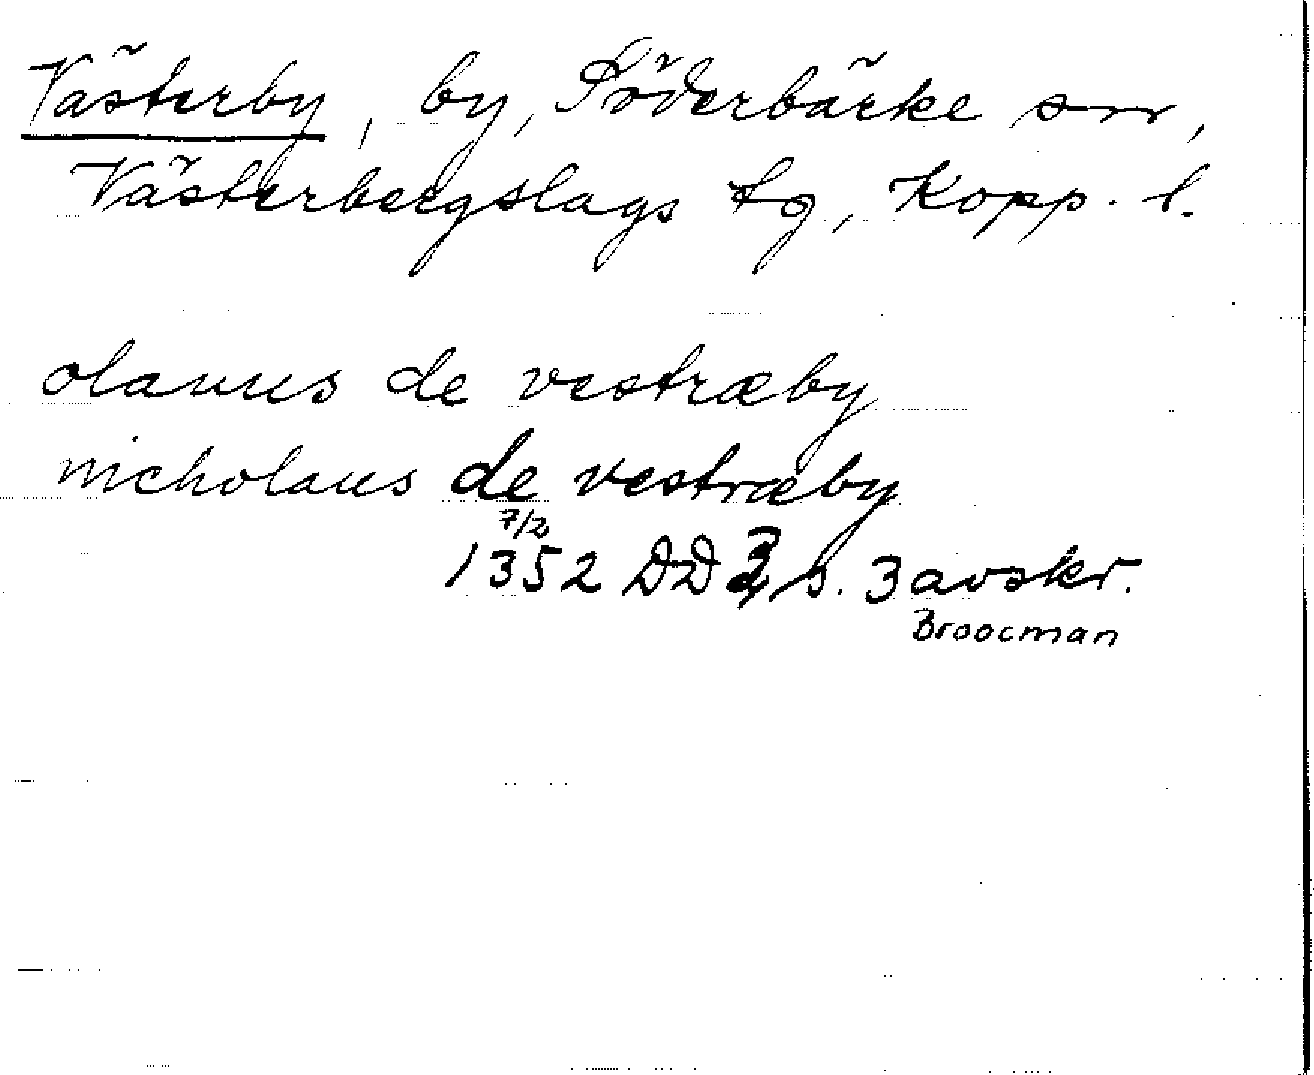 Västerby, by, Söderbärke sn,
Västerbergslags tg, Kopp. l.
olauus de vestræby
nicholaus de vestræby
7/2
1352 DD 3, s. 3 avskr.
Broocman